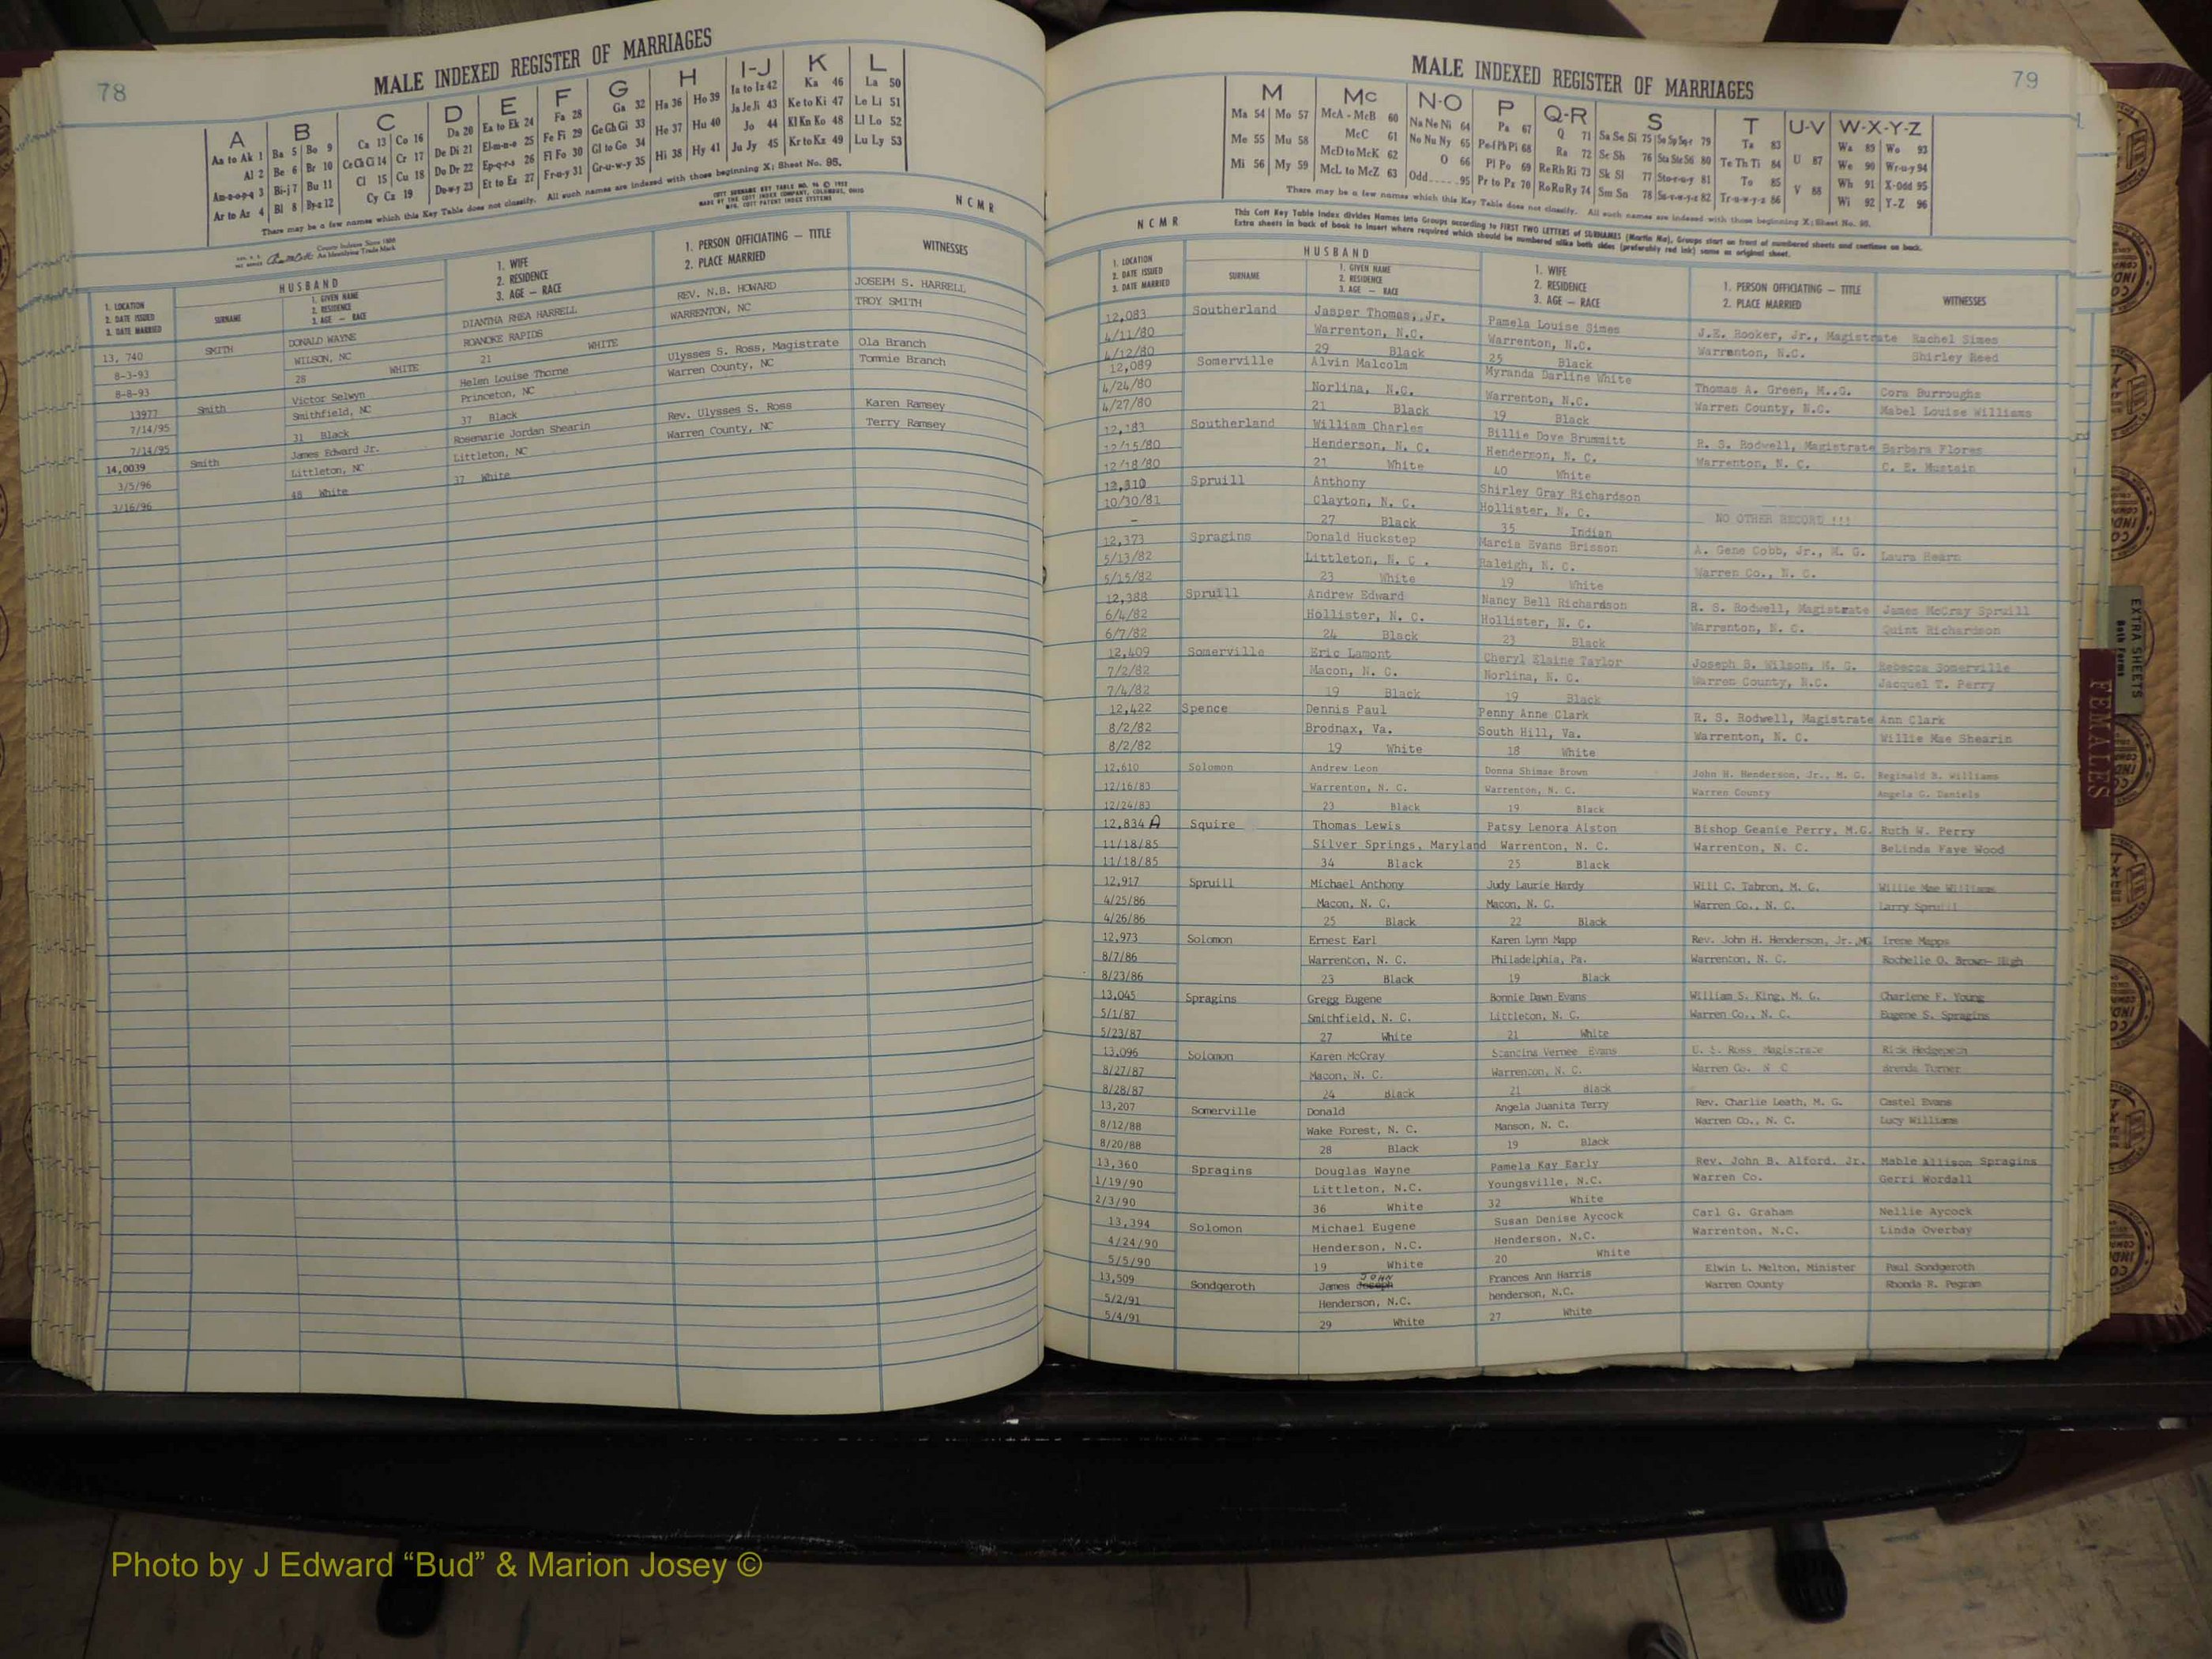 78
MALE INDEXED REGISTER OF MARRIAGES
A B C D E F G H I-J K L
Aa to Ak 1 Ba 5 Bo 9 Ca 13 Co 16 Da 20 Ea to Ek 24 Fa 28 Ga 32 Ha 36 Ho 39 Ia to Iz 42 Ka 46 La 50
Al 2 Be 6 Br 10 Ce Ch Ci 14 Cr 17 De Di 21 El-m-n-o 25 Fe Fi 29 Ge Gh Gi 33 He 37 Hu 40 Ja Je Ji 43 Ke to Ki 47 Le Li 51
Am-n-o-p-q 3 Bi-j 7 Bu 11 Cl 15 Cu 18 Do Dr 22 Ep-q-r-s 26 Fl Fo 30 Gl to Go 34 Hi 38 Hy 41 Jo 44 Kl Kn Ko 48 Ll Lo 52
Ar to Az 4 Bl 8 By-z 12 Cy Cz 19 Du-w-y 23 Et to Ez 27 Fr-u-y 31 Gr-u-w-y 35 Ju Jy 45 Kr to Kz 49 Lu Ly 53
There may be a few names which this Key Table does not classify. All such names are indexed with those beginning X; Sheet No. 95.
COTT SURNAME KEY TABLE NO. 96 © 1952
MADE BY THE COTT INDEX COMPANY, COLUMBUS, OHIO
MFG. COTT PATENT INDEX SYSTEMS
N C M R
County Indexes Since 1888
An Identifying Trade Mark
HUSBAND
1. LOCATION
2. DATE ISSUED
3. DATE MARRIED
SURNAME
1. GIVEN NAME
2. RESIDENCE
3. AGE — RACE
1. WIFE
2. RESIDENCE
3. AGE — RACE
1. PERSON OFFICIATING — TITLE
2. PLACE MARRIED
WITNESSES
13, 740 SMITH DONALD WAYNE DIANTHA RHEA HARRELL REV. N.B. HOWARD JOSEPH S. HARRELL
8-3-93 WILSON, NC ROANOKE RAPIDS WARRENTON, NC TROY SMITH
8-8-93 28 WHITE 21 WHITE
13977 Smith Victor Selwyn Helen Louise Thorne Ulysses S. Ross, Magistrate Ola Branch
7/14/95 Smithfield, NC Princeton, NC Warren County, NC Tommie Branch
7/14/95 31 Black 37 Black
14,0039 Smith James Edward Jr. Rosemarie Jordan Shearin Rev. Ulysses S. Ross Karen Ramsey
3/5/96 Littleton, NC Littleton, NC Warren County, NC Terry Ramsey
3/16/96 48 White 37 White
79
MALE INDEXED REGISTER OF MARRIAGES
M Mc N-O P Q-R S T U-V W-X-Y-Z
Ma 54 Mo 57 McA - McB 60 Na Ne Ni 64 Pa 67 Q 71 Sa Se Si 75 So Sp Sq-r 79 Ta 83 Wa 89 Wo 93
Me 55 Mu 58 McC 61 No Nu Ny 65 Pe-f Ph Pi 68 Ra 72 Sc Sh 76 Sta Ste Sti 80 Te Th Ti 84 U 87 We 90 Wr-u-y 94
Mi 56 My 59 McD to McK 62 O 66 Pl Po 69 Re Rh Ri 73 Sk Sl 77 Sto-r-u-y 81 To 85 Wh 91 X-Odd 95
McL to McZ 63 Odd 95 Pr to Pz 70 Ro Ru Ry 74 Sm Sn 78 Su-v-w-y-z 82 Tr-u-w-y-z 86 V 88 Wi 92 Y-Z 96
There may be a few names which this Key Table does not classify. All such names are indexed with those beginning X; Sheet No. 95.
N C M R
This Cott Key Table Index divides Names into Groups according to FIRST TWO LETTERS of SURNAMES (Martin Ma), Groups start on front of numbered sheets and continue on back.
Extra sheets in back of book to insert where required which should be numbered alike both sides (preferably red ink) same as original sheet.
HUSBAND
1. LOCATION
2. DATE ISSUED
3. DATE MARRIED
SURNAME
1. GIVEN NAME
2. RESIDENCE
3. AGE — RACE
1. WIFE
2. RESIDENCE
3. AGE — RACE
1. PERSON OFFICIATING — TITLE
2. PLACE MARRIED
WITNESSES
12,083 Southerland Jasper Thomas, Jr. Pamela Louise Simes J.E. Rooker, Jr., Magistrate Rachel Simes
4/11/80 Warrenton, N.C. Warrenton, N.C. Warrenton, N.C. Shirley Reed
4/12/80 29 Black 25 Black
12,089 Somerville Alvin Malcolm Myranda Darline White Thomas A. Green, M..G. Cora Burroughs
4/24/80 Norlina, N.C. Warrenton, N.C. Warren County, N.C. Mabel Louise Williams
4/27/80 21 Black 19 Black
12,183 Southerland William Charles Billie Dove Brummitt R. S. Rodwell, Magistrate Barbara Flores
12/15/80 Henderson, N. C. Henderson, N. C. Warrenton, N. C. C. E. Mustain
12/18/80 21 White 40 White
12,310 Spruill Anthony Shirley Gray Richardson
10/30/81 Clayton, N. C. Hollister, N. C. NO OTHER RECORD !!!
- 27 Black 35 Indian
12,373 Spragins Donald Huckstep Marcia Evans Brisson A. Gene Cobb, Jr., M. G. Laura Hearn
5/13/82 Littleton, N. C . Raleigh, N. C. Warren Co., N. C.
5/15/82 23 White 19 White
12,388 Spruill Andrew Edward Nancy Bell Richardson R. S. Rodwell, Magistrate James McCray Spruill
6/4/82 Hollister, N. C. Hollister, N. C. Warrenton, N. C. Quint Richardson
6/7/82 24 Black 23 Black
12,409 Somerville Eric Lamont Cheryl Elaine Taylor Joseph B. Wilson, M. G. Rebecca Somerville
7/2/82 Macon, N. C. Norlina, N. C. Warren County, N.C. Jacquel T. Perry
7/4/82 19 Black 19 Black
12,422 Spence Dennis Paul Penny Anne Clark R. S. Rodwell, Magistrate Ann Clark
8/2/82 Brodnax, Va. South Hill, Va. Warrenton, N. C. Willie Mae Shearin
8/2/82 19 White 18 White
12,610 Solomon Andrew Leon Donna Shimae Brown John H. Henderson, Jr., M. G. Reginald R. Williams
12/16/83 Warrenton, N. C. Warrenton, N. C. Warren County Angela G. Daniels
12/24/83 23 Black 19 Black
12,834 A Squire Thomas Lewis Patsy Lenora Alston Bishop Geanie Perry, M.G. Ruth W. Perry
11/18/85 Silver Springs, Maryland Warrenton, N. C. Warrenton, N. C. BeLinda Faye Wood
11/18/85 34 Black 25 Black
12,917 Spruill Michael Anthony Judy Laurie Hardy Will C. Tabron, M. G. Willie Mae Williams
4/25/86 Macon, N. C. Macon, N. C. Warren Co., N. C. Larry Spruill
4/26/86 25 Black 22 Black
12,973 Solomon Ernest Earl Karen Lynn Mapp Rev. John H. Henderson, Jr. MG Irene Mapps
8/7/86 Warrenton, N. C. Philadelphia, Pa. Warrenton, N. C. Rochelle O. Brown-High
8/23/86 23 Black 19 Black
13,045 Spragins Gregg Eugene Bonnie Dawn Evans William S. King, M. G. Charlene F. Young
5/1/87 Smithfield, N. C. Littleton, N. C. Warren Co., N. C. Eugene S. Spragins
5/23/87 27 White 21 White
13,096 Solomon Karen McCray Stancina Vernee Evans U. S. Ross Magistrate Rick Hedgepeth
8/27/87 Macon, N. C. Warrenton, N. C. Warren Co. N C Brenda Turner
8/28/87 24 Black 21 Black
13,207 Somerville Donald Angela Juanita Terry Rev. Charlie Leath, M. G. Castel Evans
8/12/88 Wake Forest, N. C. Manson, N. C. Warren Co., N. C. Lucy Williams
8/20/88 28 Black 19 Black
13,360 Spragins Douglas Wayne Pamela Kay Early Rev. John B. Alford, Jr. Mable Allison Spragins
1/19/90 Littleton, N.C. Youngsville, N.C. Warren Co. Gerri Wordall
2/3/90 36 White 32 White
13,394 Solomon Michael Eugene Susan Denise Aycock Carl G. Graham Nellie Aycock
4/24/90 Henderson, N.C. Henderson, N.C. Warrenton, N.C. Linda Overbay
5/5/90 19 White 20 White
13,509 Sondgeroth James Joseph JOHN Frances Ann Harris Elwin L. Melton, Minister Paul Sondgeroth
5/2/91 Henderson, N.C. henderson, N.C. Warren County Rhonda R. Pegram
5/4/91 29 White 27 White
EXTRA SHEETS
Both Forms
FEMALES
Photo by J Edward “Bud” & Marion Josey ©